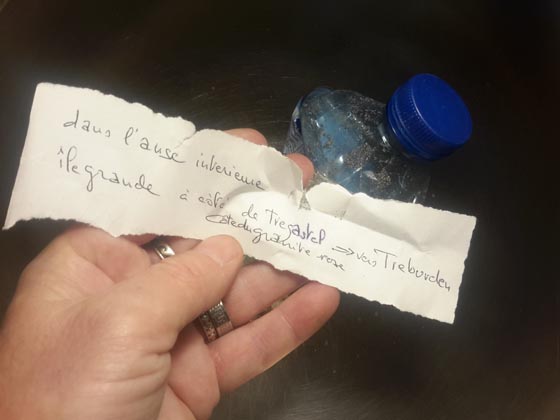 dans l'anse intérieure
île grande à côté de Tregastel ⇒ vers Treburden
Cote du granite rose